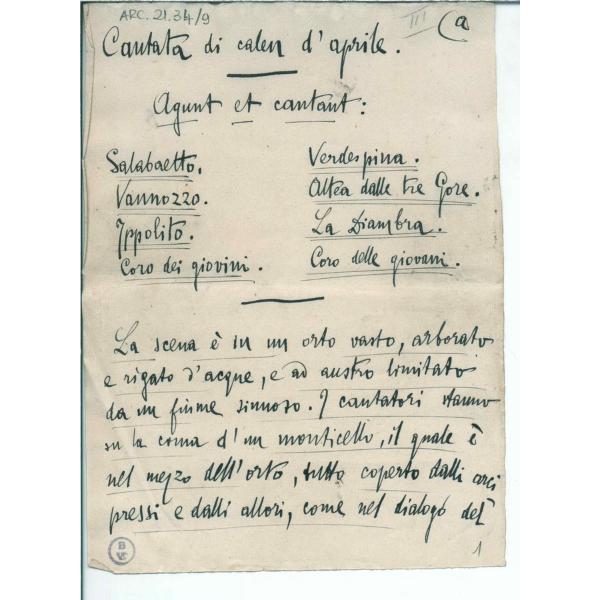 ARC. 21.34/9
III (a
Cantata di calen d'aprile.
Agunt et cantant:
Salabaetto. Verdespina.
Vannozzo. Altea dalle tre Gore.
Ippolito. La Diambra.
Coro dei giovini. Coro delle giovani.
La scena è in un orto vasto, arborato
e rigato d'acque, e ad austro limitato
da un fiume sinuoso. I cantatori stanno
su la coma d'un monticello, il quale è
nel mezo dell'orto, tutto coperto dalli arci
pressi e dalli allori, come nel dialogo del
1